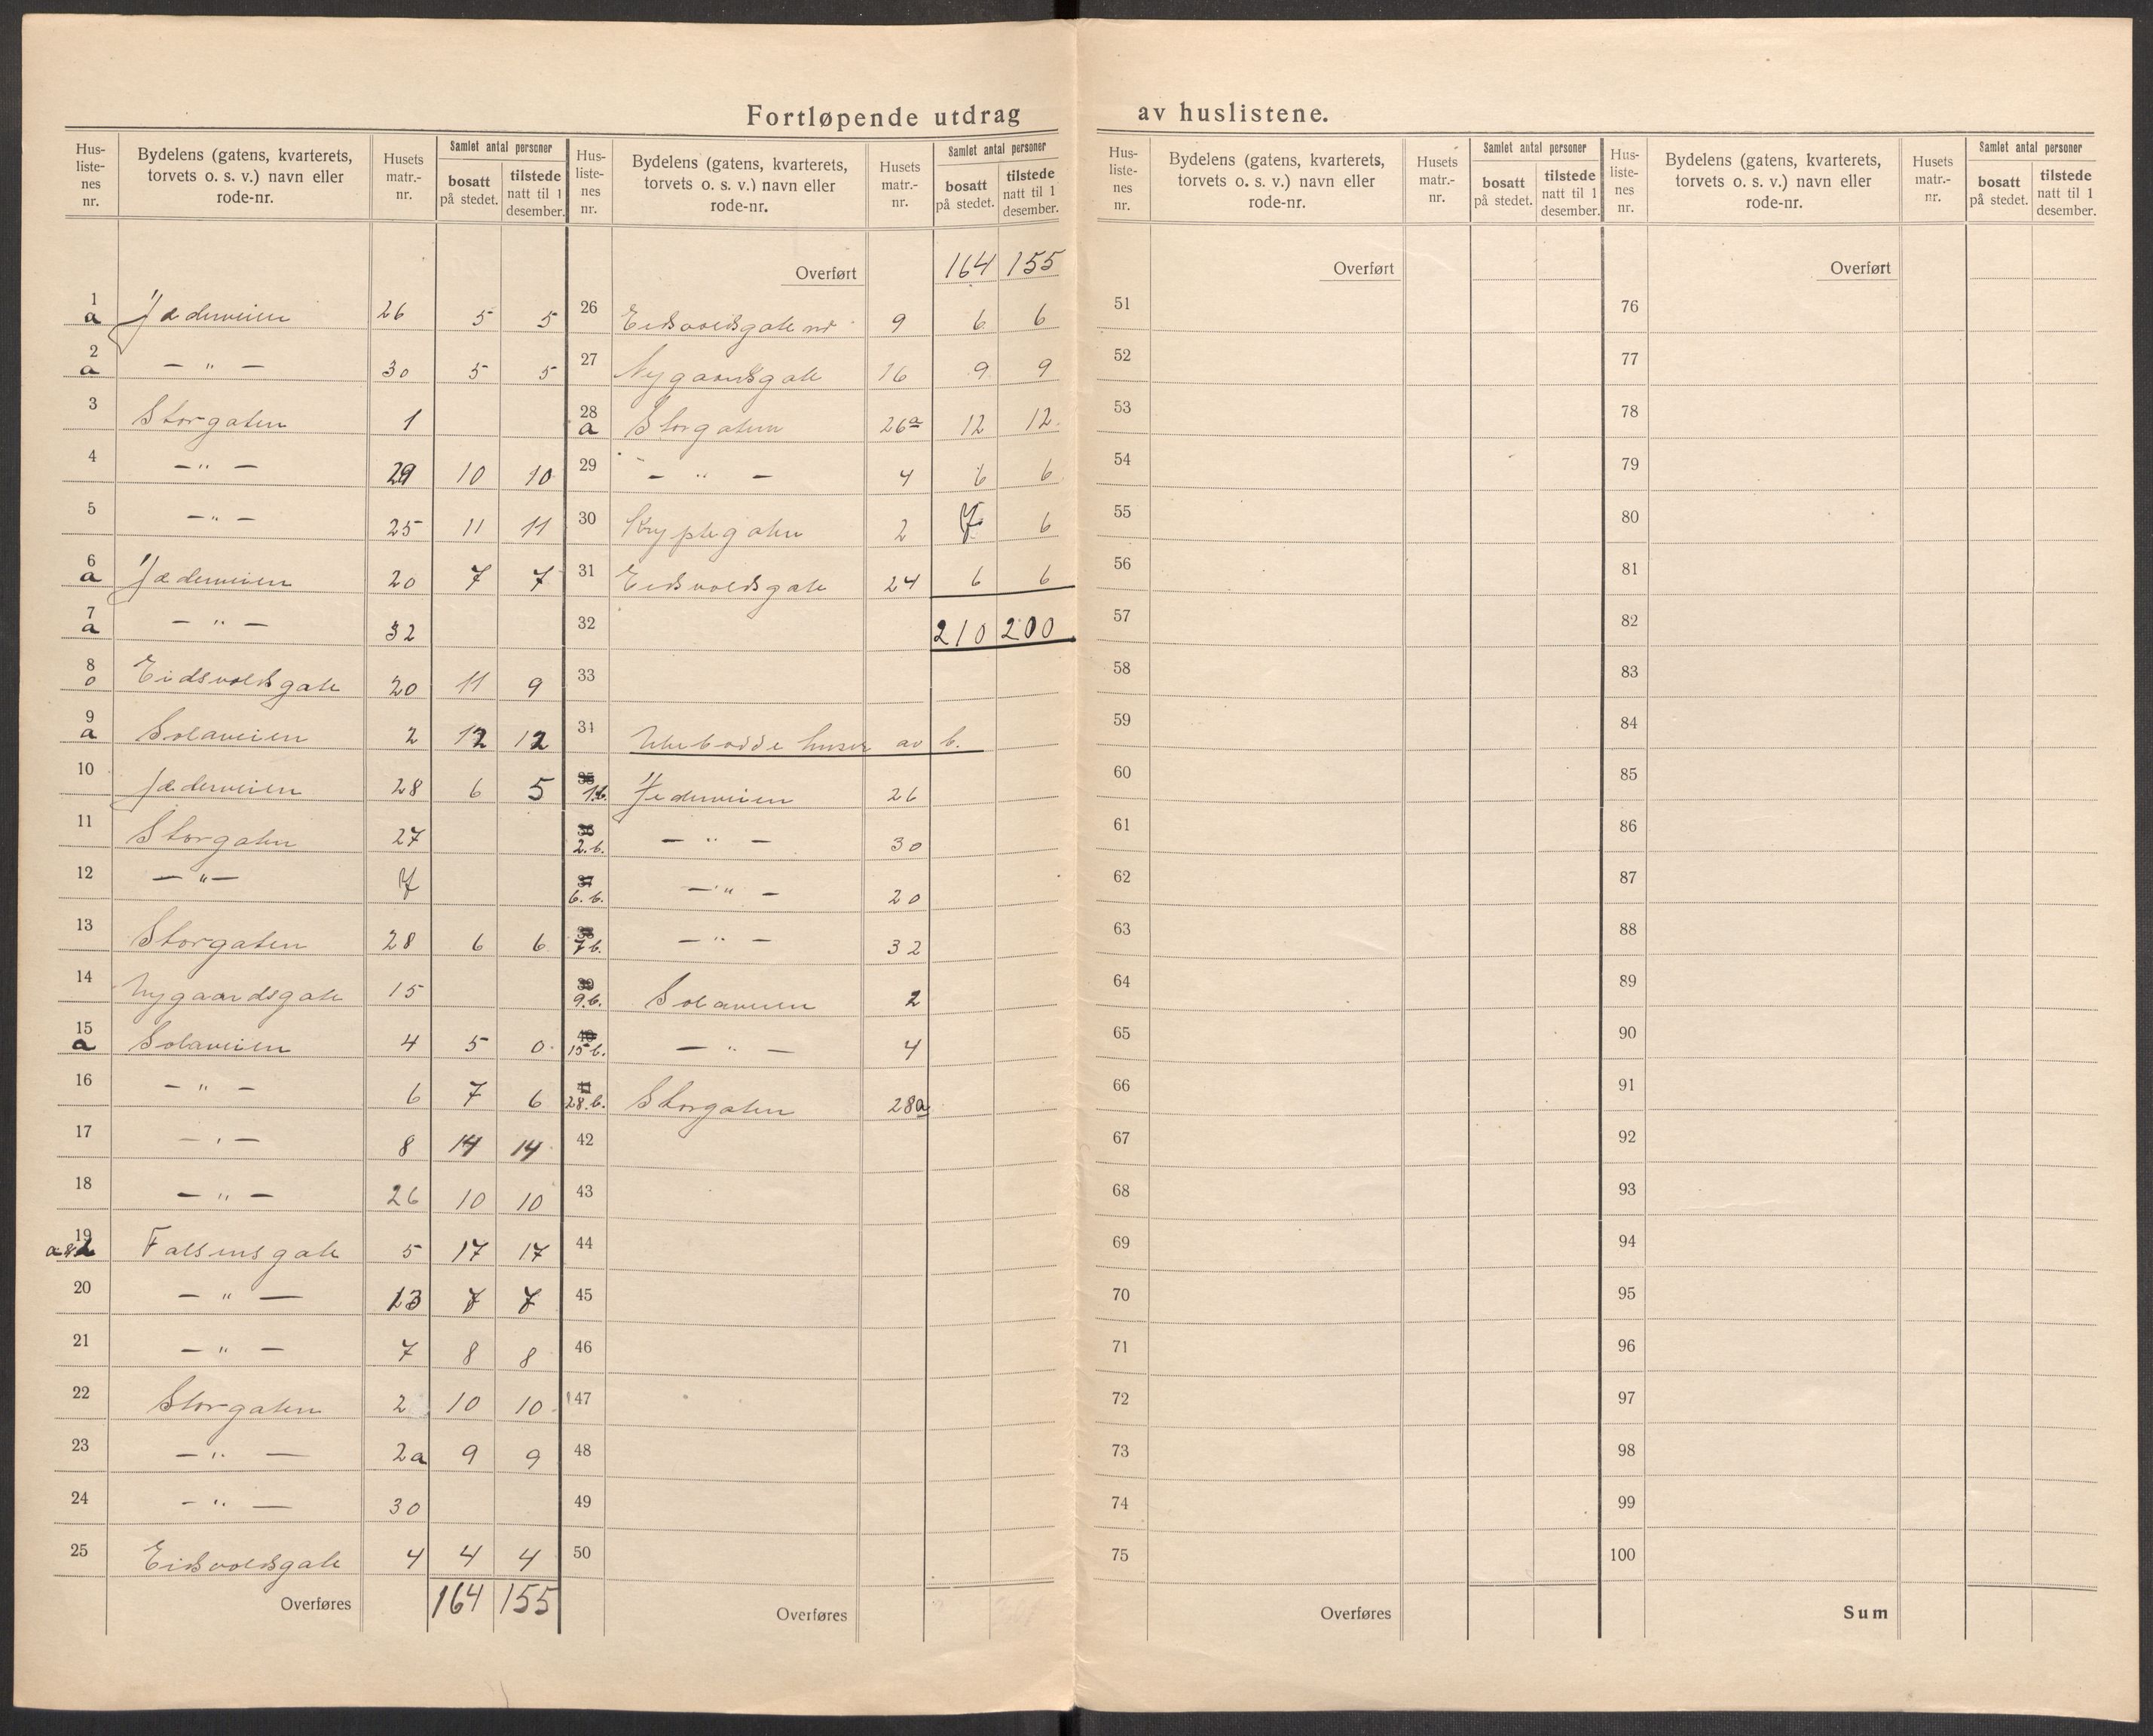 Fortløpende utdrag av huslistene.
Hus-listenes nr. | Bydelens (gatens, kvarterets, torvets o. s. v.) navn eller rode-nr. | Husets matr.-nr. | Samlet antal personer | bosatt på stedet. | tilstede natt til 1 desember.
1 a Jæderveien 26 5 5
2 a — " — 30 5 5
3 Storgaten 1
4 — " — 29 10 10
5 — " — 25 11 11
6 a Jæderveien 20 7 7
7 a — " — 32
8 Eidsvoldsgate 20 11 9
9 a Solaveien 2 12 12
10 Jæderveien 28 6 5
11 Storgaten 27
12 — " — 7
13 Storgaten 28 6 6
14 Nygaardsgate 15
15 a Solaveien 4 5 0
16 — " — 6 7 6
17 — " — 8 14 14
18 — " — 26 10 10
19 Falsensgate 5 17 17
20 — " — 13 7 7
21 — " — 7 8 8
22 Storgaten 2 10 10
23 — " — 2a 9 9
24 — " — 30
25 Eidsvoldsgate 4 4 4
Overføres 164 155
Hus-listenes nr. | Bydelens (gatens, kvarterets, torvets o. s. v.) navn eller rode-nr. | Husets matr.-nr. | Samlet antal personer | bosatt på stedet. | tilstede natt til 1 desember.
Overført 164 155
26 Eidsvoldsgate nr 9 6 6
27 Nygaardsgate 16 9 9
28 a Storgaten 26a 12 12
29 — " — 4 6 6
30 2 7 6
31 Eidsvoldsgate 24 6 6
32 210 200
33
34 Ubebodde huser av b.
35 1.b. Jederveien 26
36 2.b. — " — 30
37 6.b. — " — 20
38 7b. — " — 32
39 9.b. Solaveien 2
40 15b. — " — 4
41 28.b. Storgaten 28a
42
43
44
45
46
47
48
49
50
Overføres
Hus-listenes nr. | Bydelens (gatens, kvarterets, torvets o. s. v.) navn eller rode-nr. | Husets matr.-nr. | Samlet antal personer | bosatt på stedet. | tilstede natt til 1 desember.
Overført
51
52
53
54
55
56
57
58
59
60
61
62
63
64
65
66
67
68
69
70
71
72
73
74
75
Overføres
Hus-listenes nr. | Bydelens (gatens, kvarterets, torvets o. s. v.) navn eller rode-nr. | Husets matr.-nr. | Samlet antal personer | bosatt på stedet. | tilstede natt til 1 desember.
Overført
76
77
78
79
80
81
82
83
84
85
86
87
88
89
90
91
92
93
94
95
96
97
98
99
100
Sum